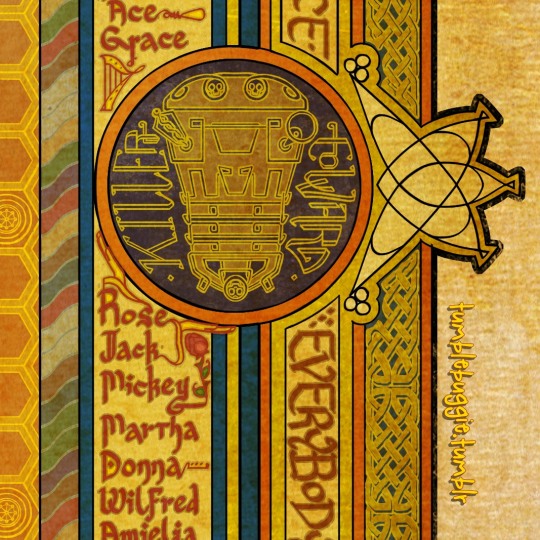 Ace
Grace
CE
KILLER
CoWARD
Rose
Jack
Mickey
Martha
Donna
Wilfred
Amielia
EVERYBOD
tumblebuggie.tumblr